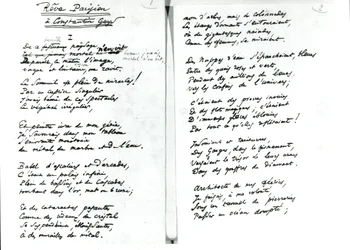 Rêve Parisien
à Constantin Guys
I
De ce paysage,
jamais mortel n'en vit,
matin l'image,
vague et lointaine,
Le Sommeil est plein de miracles!
Par un caprice singulier
J'avais banni de ces spectacles
Le végétal irrégulier,
Et, peintre fier de mon génie,
Je savourais dans mon tableau
L'enivrante monotonie
du métal, du marbre et de l'eau.
Babel d'escaliers et d'arcades,
C'était un palais infini,
Plein de bassins et de cascades
tombant dans l'or mat ou bruni;
Et des cataractes pesantes,
Comme des rideaux de cristal,
Se suspendaient, éblouissantes,
à des murailles de métal.
2
Non d'arbres, mais de colonnades
Les étangs dormants s'entouraient,
où de gigantesques naïades,
Comme des femmes, se miraient.
Des nappes d'eau s'épanchaient, bleues,
Entre des quais roses et verts,
Pendant des millions de lieues,
Vers les confins de l'univers;
C'étaient des pierres inouïes
Et des flots magiques; c'étaient
D'immenses glaces éblouies
Par tout ce qu'elles reflétaient!
Insouciants et taciturnes,
Des Ganges, dans le firmament,
Versaient le trésor de leurs urnes
Dans des gouffres de diamant.
Architecte de mes féeries,
Je faisais, à ma volonté,
Sous un tunnel de pierreries
Passer un océan dompté;